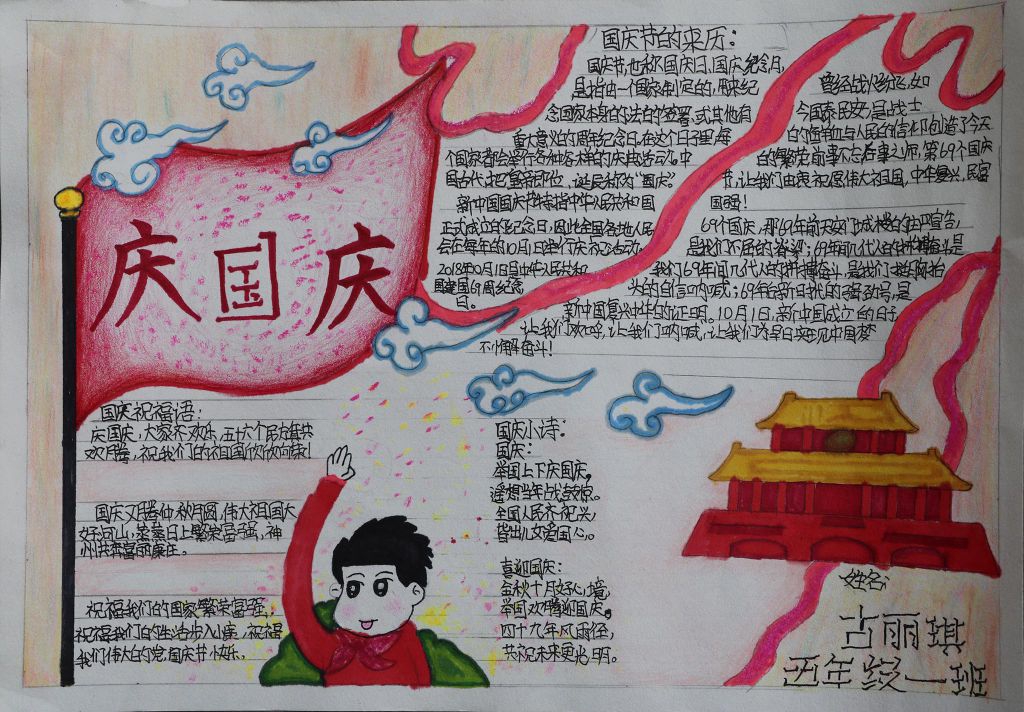 庆国庆
国庆节的来历:
国庆节,也称国庆日、国庆纪念日,
是指由一个国家制定的,用来纪
念国家本身的法定的签署、或其他有
重大意义的周年纪念日。在这个日子里,每
个国家都会举行各种各样的庆典活动。中
国古代,把皇帝即位、诞辰称为“国庆”。
新中国国庆节特指中华人民共和国
正式成立的纪念日,因此全国各地人民
会在每年的10月1日举行庆祝活动。
2018年10月1日是中华人民共和
国建国69周纪念
日。
曾经战火纷飞,如
今国泰民安,是战士
的鲜血与人民的信仰创造了今天
的繁荣,前事不忘后事之师,第69个国庆
节,让我们由衷祝愿伟大祖国,中华复兴,民富
国强!
69个国庆,那69年前天安门城楼的庄严宣告,
是我们不屈的脊梁;69年间几代人的拼搏奋斗是
我们69年间几代人的拼搏奋斗,是我们
头的自信呐喊;69年后新时代的强劲号,是
新中国复兴中华的证明。10月1,新中国成立的日子
让我们欢呼,让我们呐喊,让我们为早日实现中国梦
不懈奋斗!
国庆祝福语:
庆国庆,大家齐欢乐,五十六个民族共
欢腾,祝我们的祖国欣欣向荣!
国庆又月圆仲秋月圆,伟大祖国大
好河山,蒸蒸日上繁荣富强,神
州共奔富丽康庄。
祝福我们的国家繁荣富强,
祝福我们的生活步入小康,祝福
我们伟大的党,国庆节快乐。
国庆小诗:
国庆:
举国上下庆国庆。
遥想当年战鼓惊。
全国人民齐祝兴,
皆出儿女爱国心。
喜迎国庆:
金秋十月好心境,
举国欢腾迎国庆。
四十九年风雨径,
共祝未来更光明。
姓名:
古丽琪
五年级一班